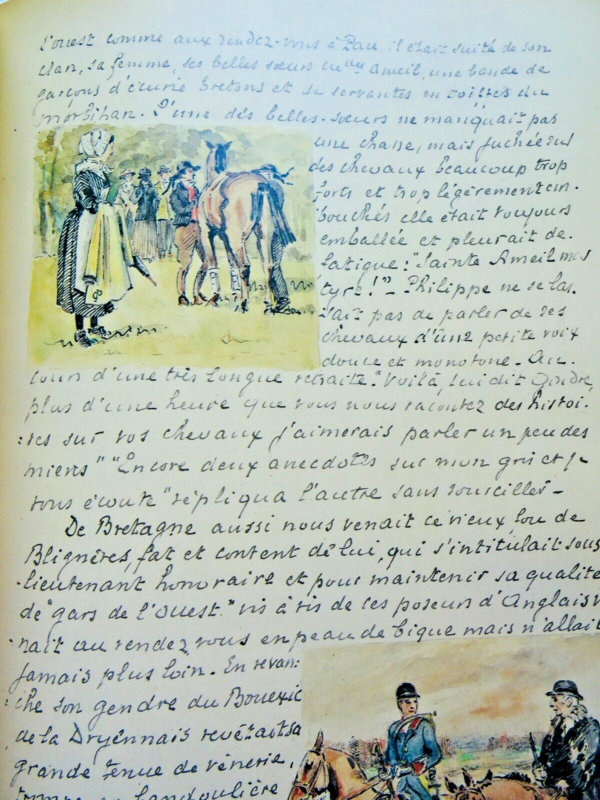 l'ouest comme aux rendez-vous à Pau il était suité de son
clan, sa femme, ses belles sœurs Ameil, une bande de
garçons d'écurie bretons et de servantes en coiffes du
Morbihan. L'une des belles-sœurs ne manquait pas
une chasse, mais juchée sur
des chevaux beaucoup trop
forts et trop légèrement em-
bouchés elle était toujours
emballée et pleurait de
fatigue: "Sainte Ameil mar
tyre!" – Philippe ne se las-
sait pas de parler de ses
chevaux d'une petite voix
douce et monotone – Au
cours d'une très longue retraite. "Voilà, lui dit Gondre,
plus d'une heure que vous nous racontez des histoi-
res sur vos chevaux j'aimerais parler un peu des
miens" "Encore deux anecdotes sur mon gris et je
vous écoute" répliqua l'autre sans sourciller –
De Bretagne aussi nous venait ce vieux fou de
Blignères, fat et content de lui, qui s'intitulait sous
-lieutenant honoraire et pour maintenir sa qualité
de "gars de l'ouest" vis à vis de ces poseurs d'Anglais v
nait au rendez vous en peau de bique mais n'allait
jamais plus loin. En revan-
che son gendre du Bouexic
de la Dryennais revêtait sa
grande tenue de vénerie,
trompe en bandoulière